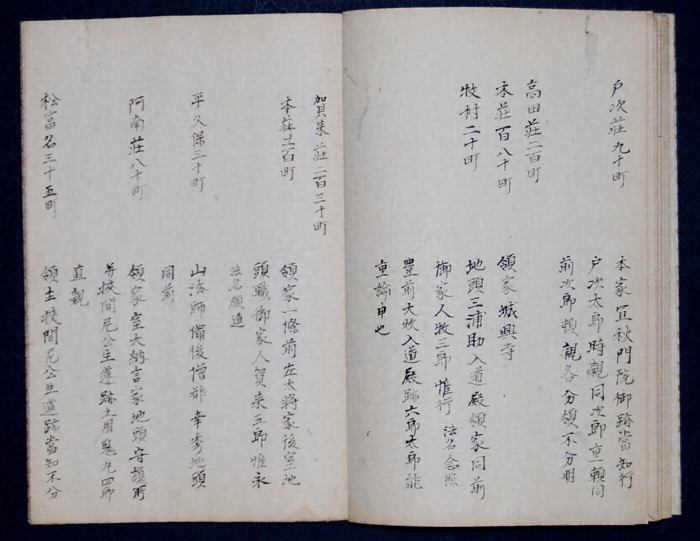 戸次荘九十町
本家宜秋門院御跡當知行
戸次太郎時親同次郎重頼同
前次郎頼親各分領不分明
高田荘二百町
領家城興寺
本荘百八十町
地頭三浦助入道殿領家同前
牧村二十町
御家人牧三郎惟行 法名念照
豊前大炊入道殿跡六郎太郎能
重論申也
賀来荘二百三十町
本荘二百町
領家一條前左大將家後室地
頭職御家人賀来五郎惟永
法名願連
平久保三十町
山法師備後僧都幸秀地頭
同前
阿南荘八十町
領家室大納言家地頭守護所
并狹間尼公生蓮跡土用鬼丸四郎
直親
松冨名三十五町
領主狹間尼公生蓮跡當知不分